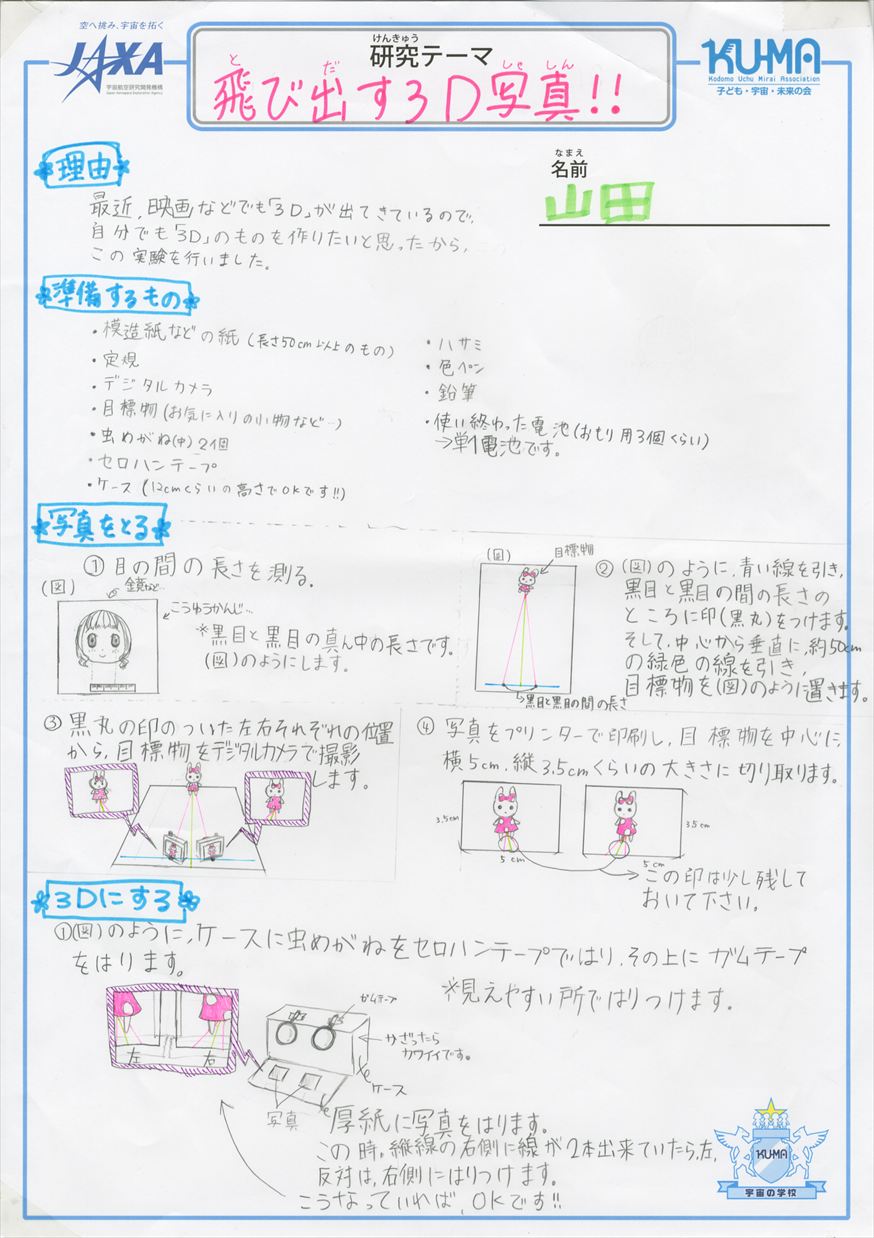 空へ挑み、宇宙を拓く
JAXA
宇宙航空研究開発機構
Japan Aerospace Exploration Agency
けんきゅう
研究テーマ
と だ しゃ しん
飛び出す3D写真!!
KU-MA
Kodomo Uchu Mirai Association
子ども・宇宙・未来の会
なまえ
名前
山田
理由
最近、映画などでも「3D」が出てきているので、
自分でも「3D」のものを作りたいと思ったから、
この実験を行いました。
準備するもの
・模造紙などの紙(長さ50cm以上のもの)
・定規
・デジタルカメラ
・目標物(お気に入りの小物など…)
・虫めがね(中)2個
・セロハンテープ
・ケース(12cmくらいの高さでOKです!!)
・ハサミ
・色ペン
・鉛筆
・使い終わった電池(おもり用3個くらい)
→単1電池です。
写真をとる
①目の間の長さを測る.
(図)
鏡など…
こうゆうかんじ…
※黒目と黒目の真ん中の長さです。
(図)のようにします。
(図)
目標物
黒目と黒目の間の長さ
②(図)のように、青い線を引き、
黒目と黒目の間の長さの
ところに印(黒丸)をつけます。
そして、中心から垂直に、約50cm
の緑色の線を引き、
目標物を(図)のように置きます。
③黒丸の印のついた左右それぞれの位置
から、目標物をデジタルカメラで撮影
します。
④写真をプリンターで印刷し、目標物を中心に、
横5cm、縦3.5cmくらいの大きさに切り取ります。
3.5cm
5cm
3.5cm
5cm
この印は少し残して
おいて下さい。
3Dにする
①(図)のように、ケースに虫めがねをセロハンテープではり、その上にガムテープ
をはります。
※見えやすい所ではりつけます。
左
右
ガムテープ
かざったら
カワイイです。
ケース
写真
厚紙に写真をはります。
この時、縦線の右側に線が2本出来ていたら、左、
反対は、右側にはりつけます。
こうなっていれば、OKです!!
KU-MA
宇宙の学校